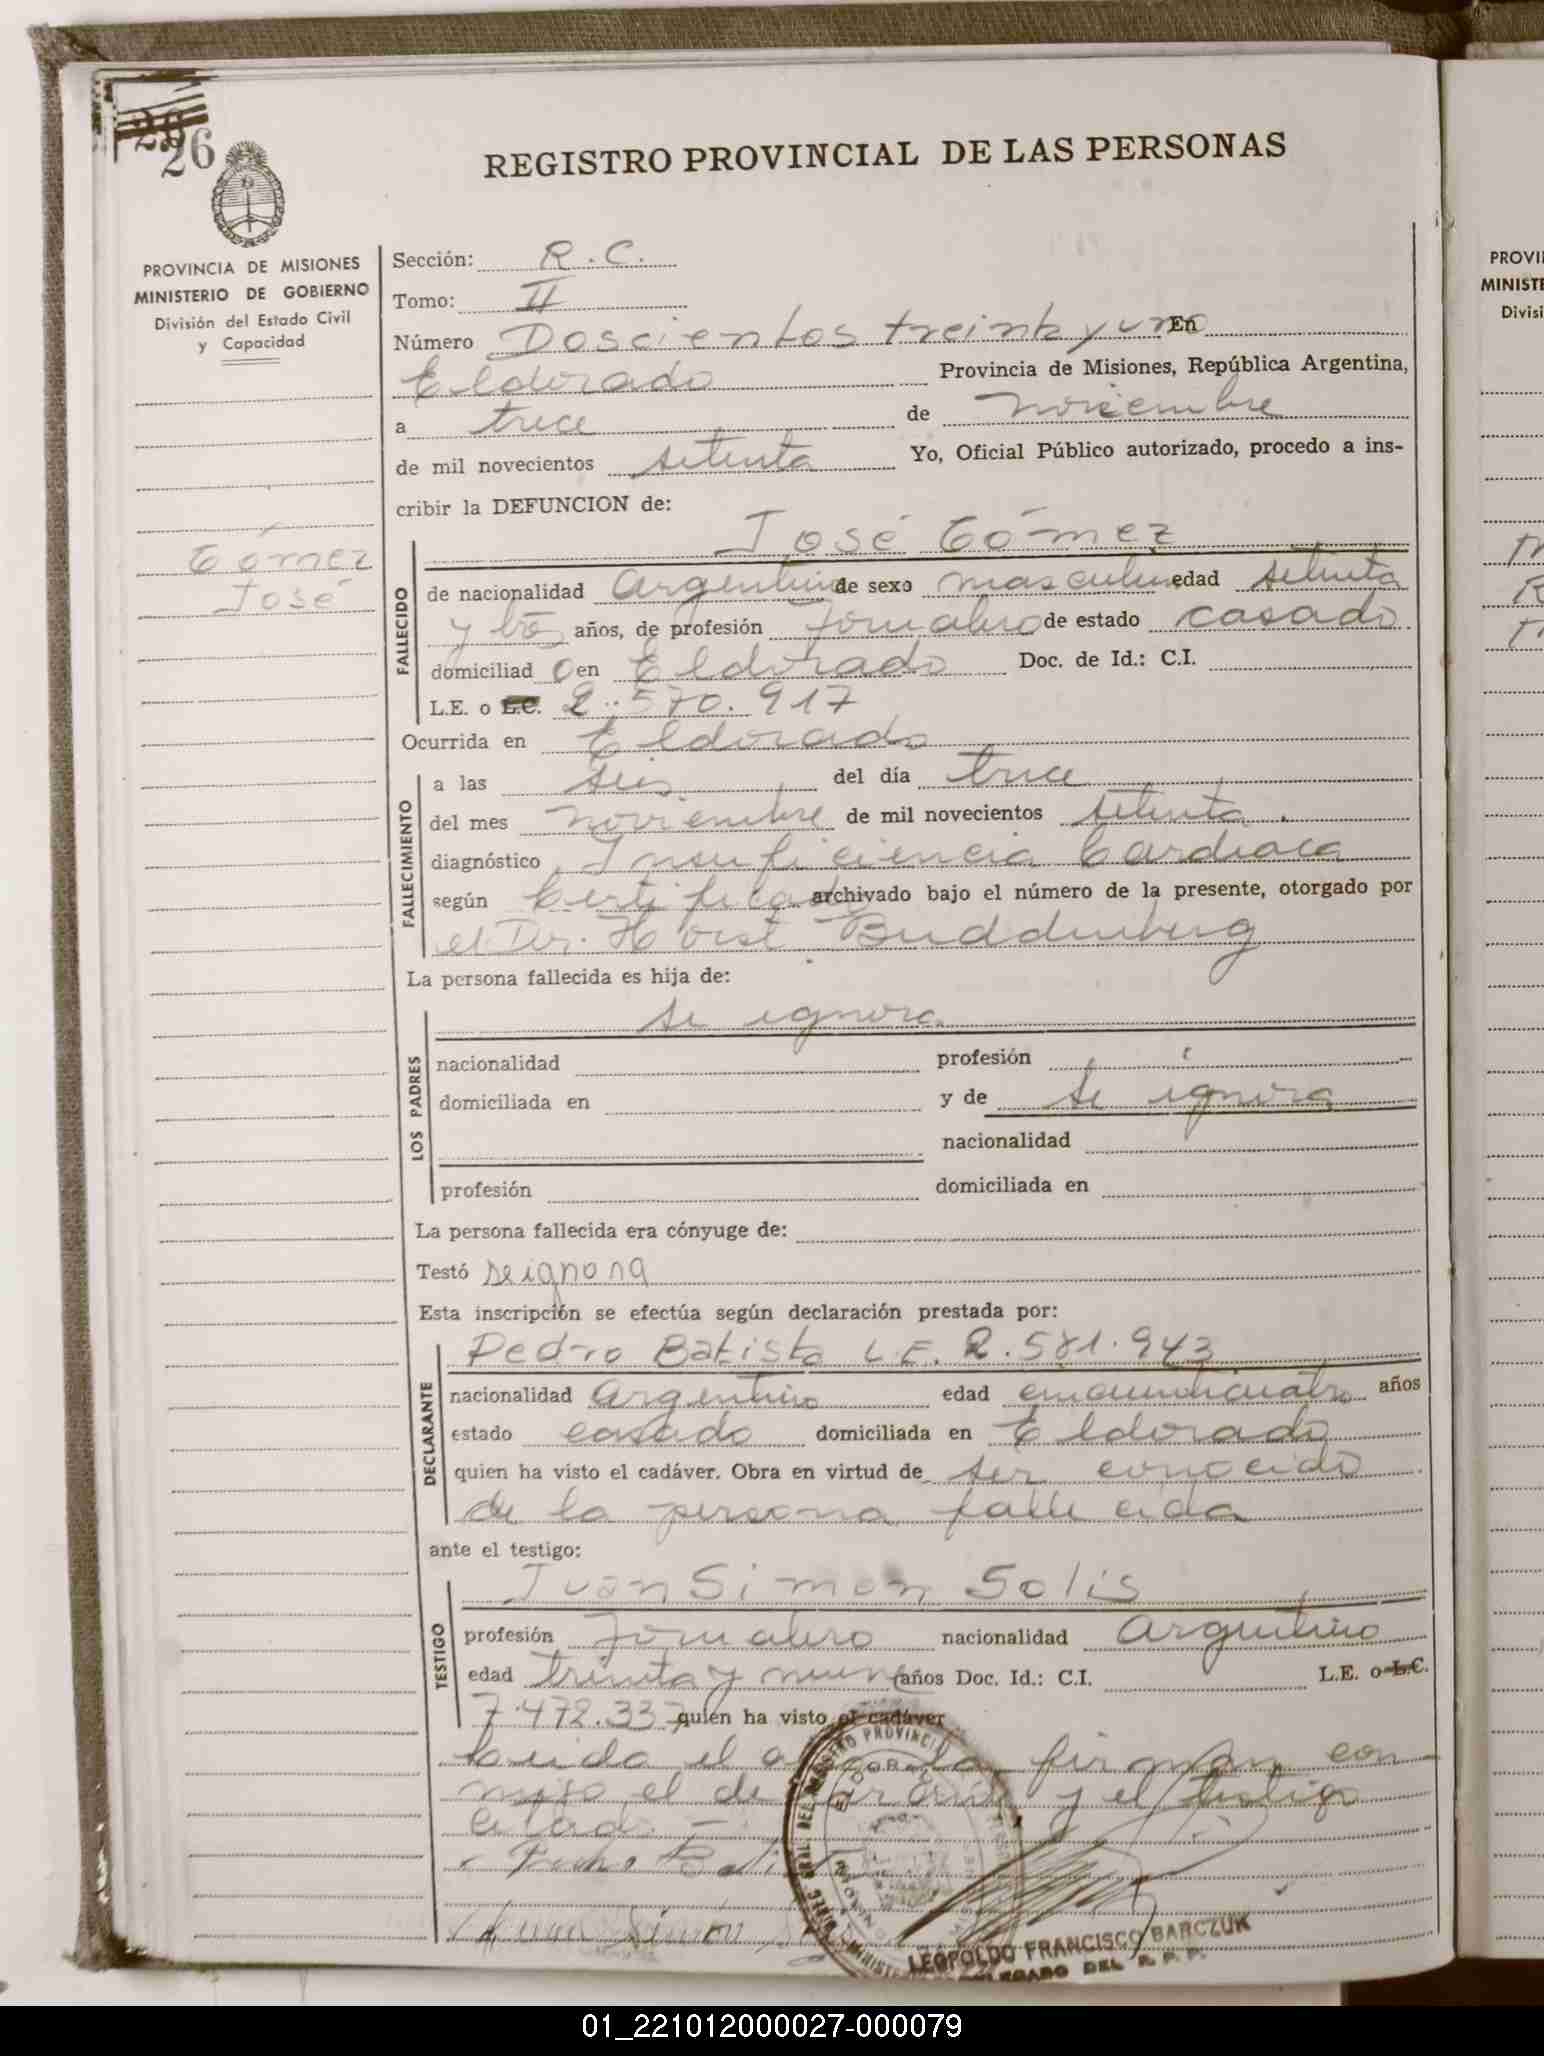 26
REGISTRO PROVINCIAL DE LAS PERSONAS
PROVINCIA DE MISIONES
MINISTERIO DE GOBIERNO
División del Estado Civil
y Capacidad
Sección: R.C.
Tomo: II
Número Doscientos treinta y uno En
Eldorado Provincia de Misiones, República Argentina,
a trece de noviembre
de mil novecientos setenta Yo, Oficial Público autorizado, procedo a ins-
cribir la DEFUNCION de:
Gómez
José
José Gómez
FALLECIDO
de nacionalidad Argentina de sexo masculino edad setenta
y años, de profesión Jornalero de estado casado
domiciliado en Eldorado Doc. de Id.: C.I.
L.E. o L.C. 2.570.917
Ocurrida en Eldorado
FALLECIMIENTO
a las seis del día trece
del mes noviembre de mil novecientos setenta.
diagnóstico Insuficiencia Cardiaca
según Certificado archivado bajo el número de la presente, otorgado por
el Dr. Horst Buddenberg
La persona fallecida es hija de:
LOS PADRES
se ignora
nacionalidad profesión
domiciliada en y de se ignora
nacionalidad
profesión domiciliada en
La persona fallecida era cónyuge de:
Testó se ignora
Esta inscripción se efectúa según declaración prestada por:
DECLARANTE
Pedro Batista L.E. 2.581.943
nacionalidad Argentino edad años
estado casado domiciliada en Eldorado
quien ha visto el cadáver. Obra en virtud de ser conocido
de la persona fallecida
ante el testigo:
TESTIGO
Juan Simon Solis
profesión Jornalero nacionalidad Argentino
edad treinta y nueve años Doc. Id.: C.I. L.E. o L.C.
7.472.337 quien ha visto el cadáver
Leida el acta la firman con-
migo el declarante y el testigo
citado.-
Pedro Batista
Juan Simón
LEOPOLDO FRANCISCO BARCZUK
DELEGADO DEL R. P. P.
PROVI
MINISTE
Divisi
01_221012000027-000079